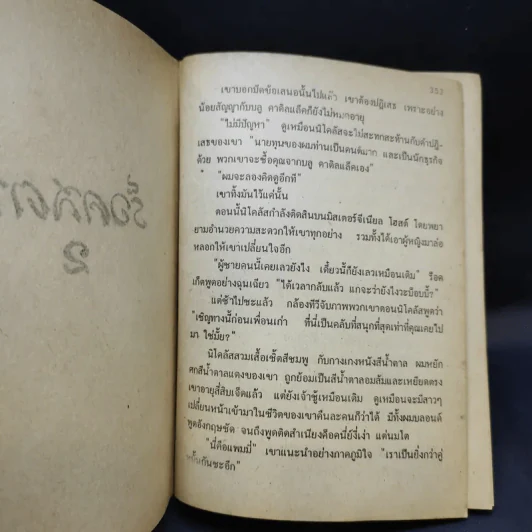 352
เขาบอกปัดข้อเสนอนั้นไปแล้ว เขาต้องปฏิเสธ เพราะอย่าง
น้อยสัญญากับบลู คาดิลแล็คก็ยังไม่หมดอายุ
"ไม่มีปัญหา" ดูเหมือนนิโคลัสจะไม่สะทกสะท้านกับคำปฏิ-
เสธของเขา "นายทุนของผมท่านเป็นคนดีมาก และเป็นนักธุรกิจ
ด้วย พวกเขาจะซื้อคุณจากบลู คาดิลแล็คเอง"
"ผมจะลองคิดดูอีกที"
เขาทิ้งมันไว้แค่นั้น
ตอนนี้นิโคลัสกำลังติดสินบนมิสเตอร์จีเนียล ไฮสต์ โดยพยา
ยามอำนวยความสะดวกให้เขาทุกอย่าง รวมทั้งได้เอาผู้หญิงมาล่อ
หลอกให้เขาเปลี่ยนใจอีก
"ผู้ชายคนนี้เคยเลวยังไง เดี๋ยวนี้ก็ยังเลวเหมือนเดิม" ร็อค
เก็ตพูดอย่างฉุนเฉียว "ได้เวลากลับแล้ว แกจะว่ายังไงวะบ๊อบบี้?"
แต่ช้าไปซะแล้ว กล้องทีวีจับภาพพวกเขาตอนนิโคลัสพูดว่า
"เชิญทางนี้ก่อนเพื่อนเก่า ที่นี่เป็นคลับที่สนุกที่สุดเท่าที่คุณเคยไป
มา ใช่มั้ย?"
นิโคลัสสวมเสื้อเชิ้ตสีชมพู กับกางเกงหนังสีน้ำตาล ผมหยัก
ศกสีน้ำตาลแดงของเขา ถูกย้อมเป็นสีน้ำตาลอมส้มและเหยียดตรง
เขาอายุสี่สิบเจ็ดแล้ว แต่ยังเจ้าชู้เหมือนเดิม ดูเหมือนจะมีสาวๆ
เปลี่ยนหน้าเข้ามาในชีวิตของเขาคืนละคนก็ว่าได้ มีทั้งผมบลอนด์
พูดอังกฤษชัด จนถึงพูดติดสำเนียงค็อคนี่ย์งี่เง่า แต่นมโต
"นี่คือแพมมี่" เขาแนะนำอย่างภาคภูมิใจ "เราเป็นยิ่งกว่าคู่
หมั้นกันซะอีก"